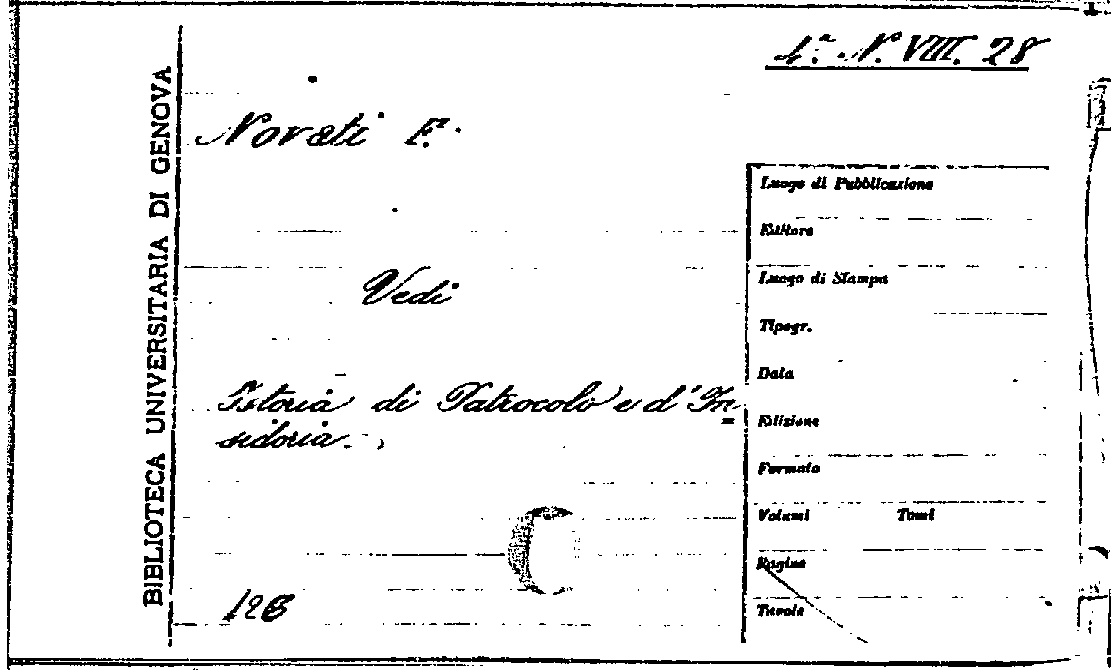 4.a N. VIII. 28
BIBLIOTECA UNIVERSITARIA DI GENOVA
Novati F.
Vedi
Istoria di Patrocolo e d'In=
sidoria.
Luogo di Pubblicazione
Editore
Luogo di Stampa
Tipogr.
Data
Edizione
Formato
Volumi Tomi
Pagine
Tavole